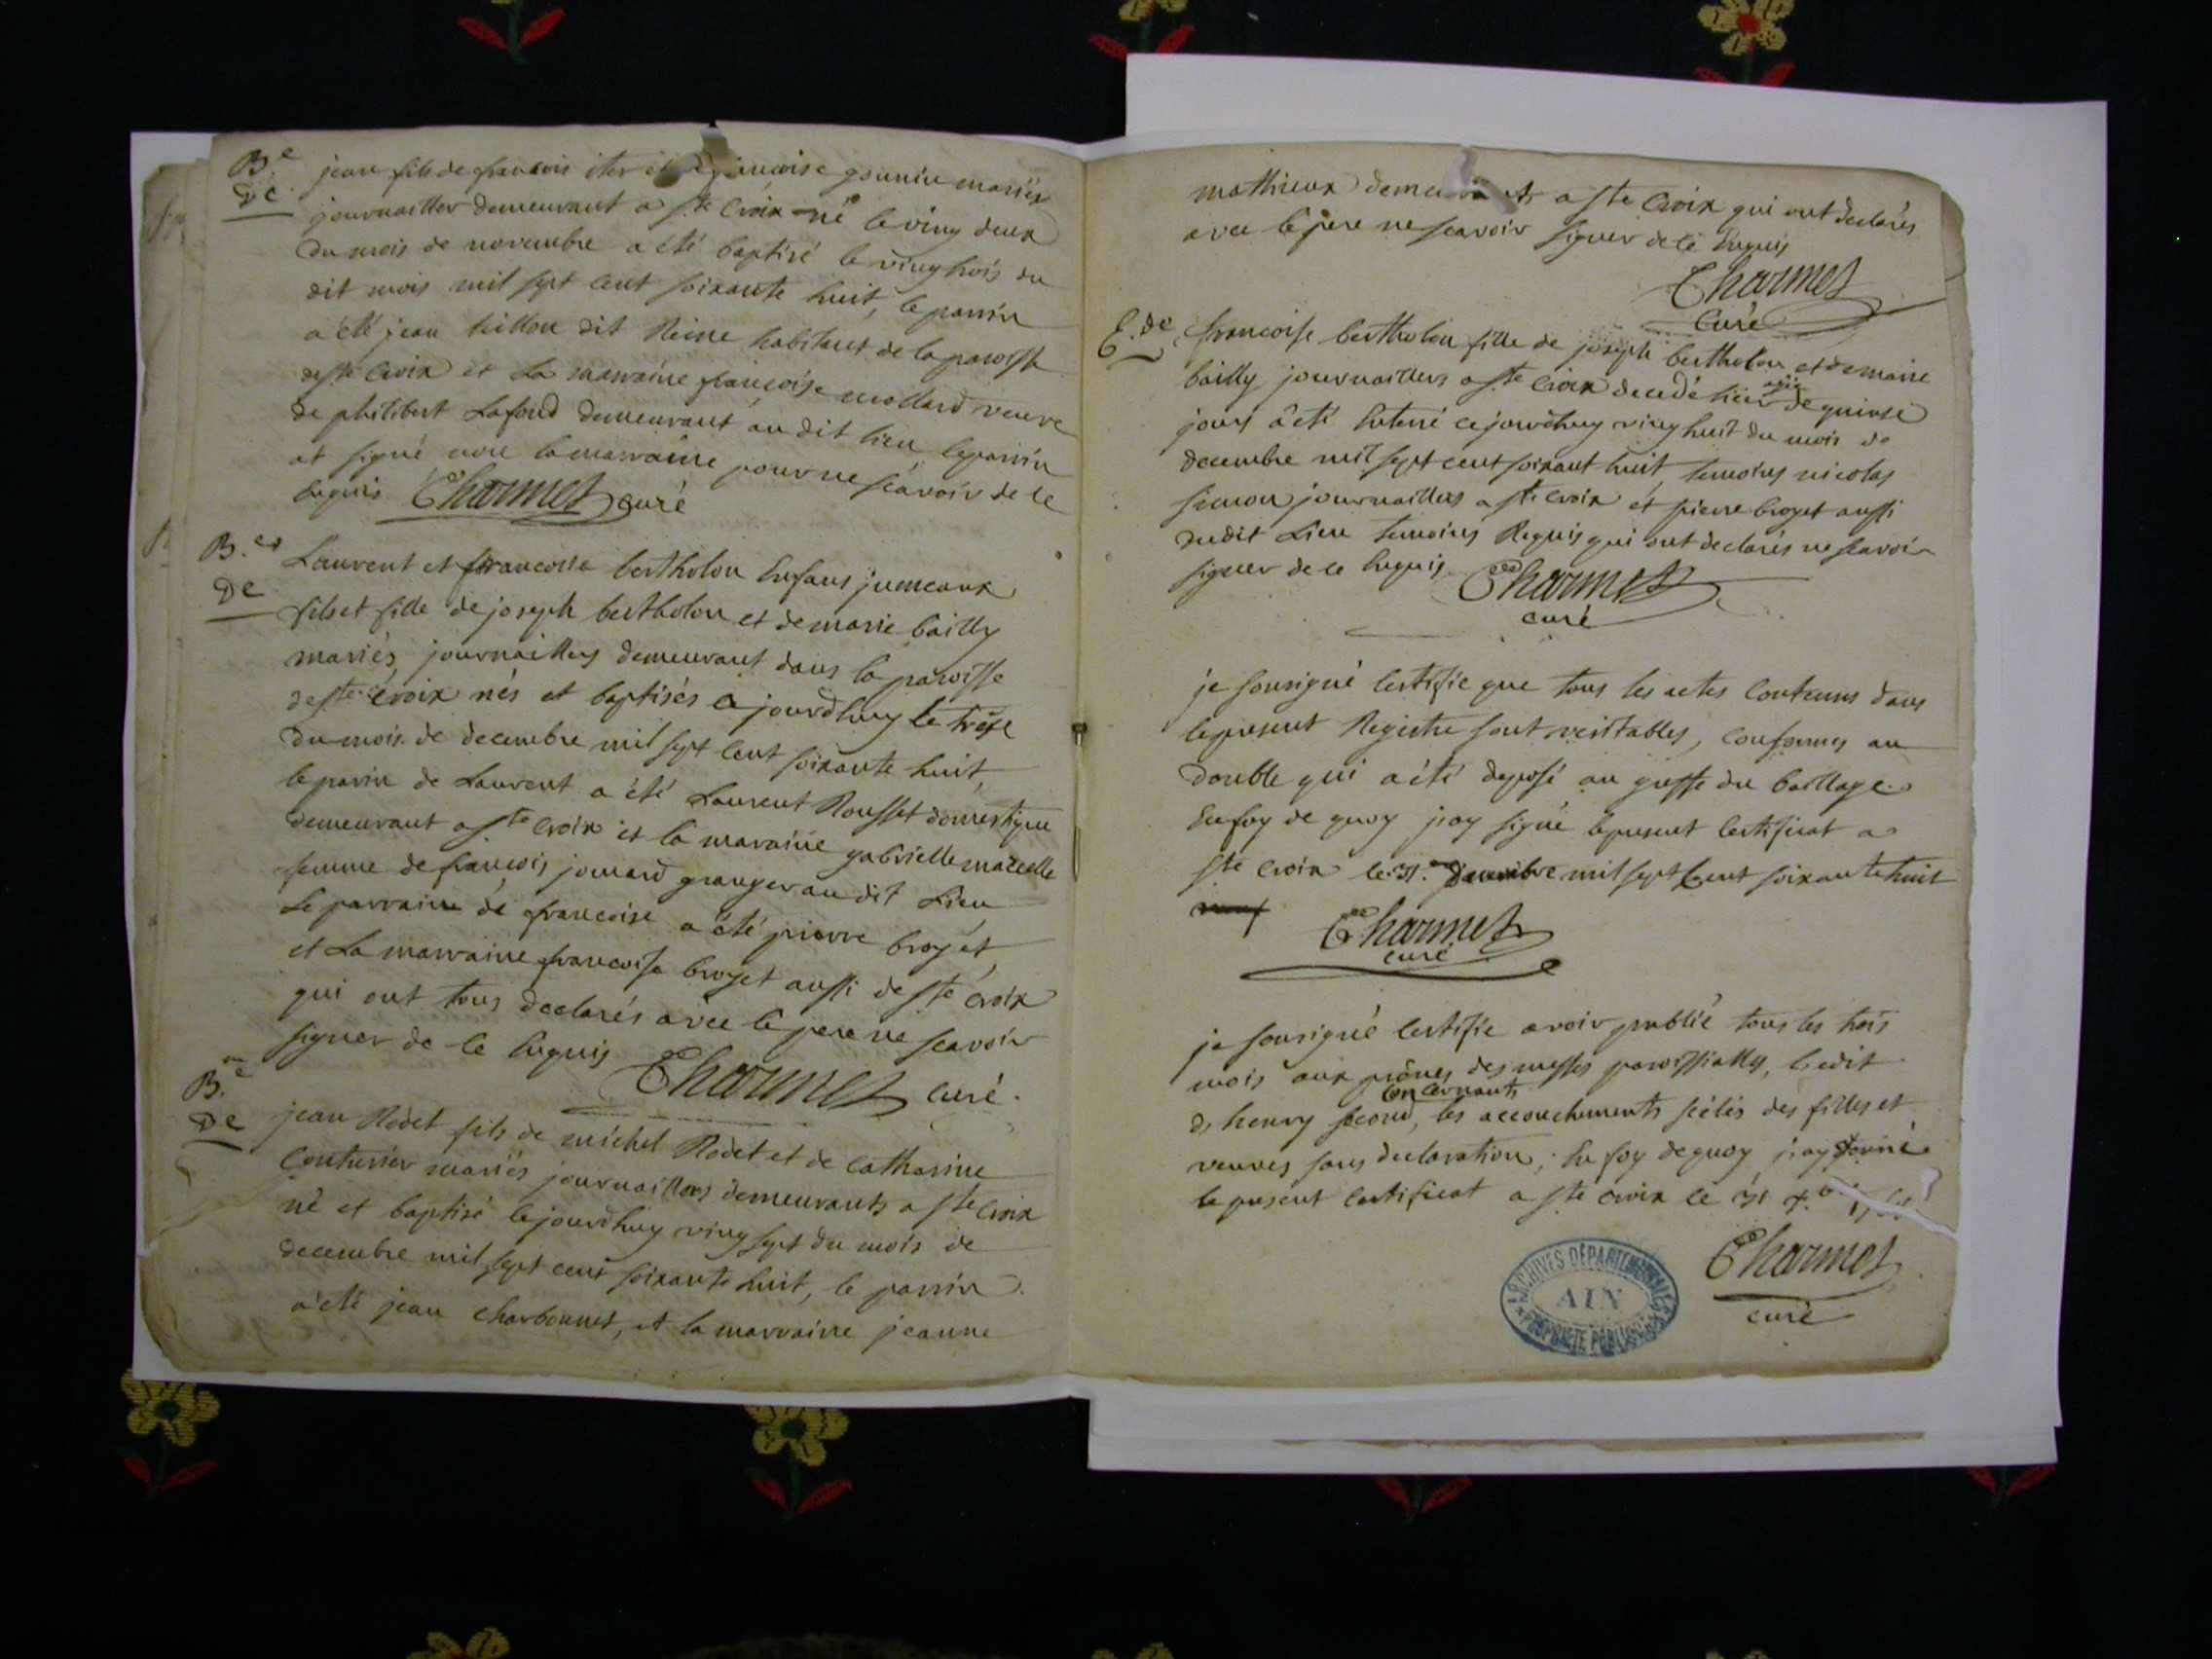 B.e
De
jean fils de francois iter et de francoise gounin mariés
journaillier demeurant a ste Croix né le ving deux
du mois de novembre a été baptisé le ving trois du
dit mois mil sept cent soixante huit, le parrin
a été jean dit Reine habitant de la paroisse
de ste Croix et La marraine françoise mollard veuve
de philibert Lafond demeurant au dit lieu le parrin
at signé non la marraine pour ne sçavoir de ce
enquis Charmet curé
B.es
De
Laurent et francoise bertholon enfans jumeaux
fils et fille de joseph bertholon et de marie bailly
mariés journailliers demeurant dans la paroisse
de ste croix nés et baptisés ce jourdhuy le trese
du mois de decembre mil sept cent soixante huit,
le parin de Laurent a été Laurent Rousset domestique
demeurant a ste Croix et la maraine gabrielle
femme de françois jomard granger au dit Lieu
Le parraine de francoise a été pierre broyet
et La marraine francoise broyet aussi de ste Croix
qui ont tous declarés avec le pere ne scavoir
signer de ce enquis Charmet curé.
B.e
De
jean Rodet fils de michel Rodet et de Catharine
Couturier mariés journailliers demeurants a ste Croix
né et baptisé cejourdhuy ving sept du mois de
decembre mil sept cent soixante huit, le parrin
a été jean charbonnet, et la marraine jeanne
mathieux demeurants a ste Croix qui ont declarés
avec le pere ne scavoir signer de ce enquis
Charmet
Curé
E. de
francoise bertholon fille de joseph bertholon et de marie
bailly journailliers a ste Croix decedé hier agée de quinse
jours a été enterré cejourdhuy ving huit du mois de
decembre mil sept cent soixant huit, temoins nicolas
simon journaillier a ste croix et pierre broyet aussi
dudit Lieu temoins Requis qui ont declarés ne scavoir
signer de ce enquis Charmet
curé
je sousigné Certifie que tous les actes Contenus dans
le present Registre sont veritables, conformes au
double qui a été deposé au greffe du baillage.
En foy de quoy j'ay signé le present Certificat a
ste Croix le 31. decembre mil sept Cent soixante huit
Charmet
curé
je sousigné Certifie avoir publié tous les trois
mois aux prônes des messes paroissialles, l'edit
d, henry second, concernants les accouchements des filles et
veuves sans declaration; En foy de quoy j'ay donné
le present Certificat a ste Croix le 31
Charmet
curé
ARCHIVES DÉPARTEMENTALES
AIN
PROPRIÉTÉ PUBLIQUE